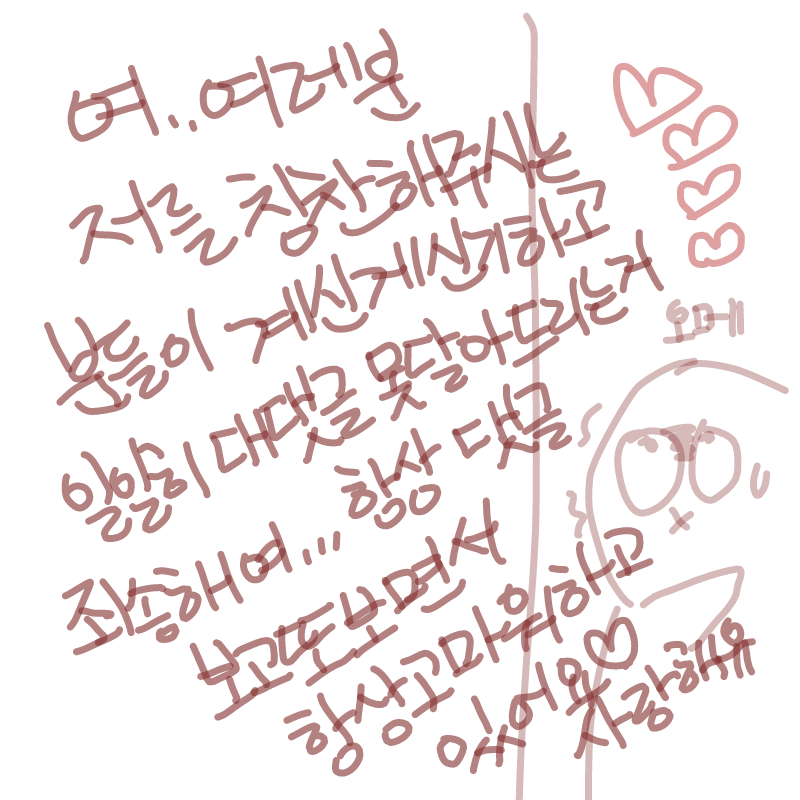 여..여레분
저를 칭찬해주시는
분들이 계신게신기하고
일일이 대댓글 못달아 드리는거
죄송해여... 항상 댓글
보고또보면서
항상고마워하고
있어유♡
사랑해유
오메